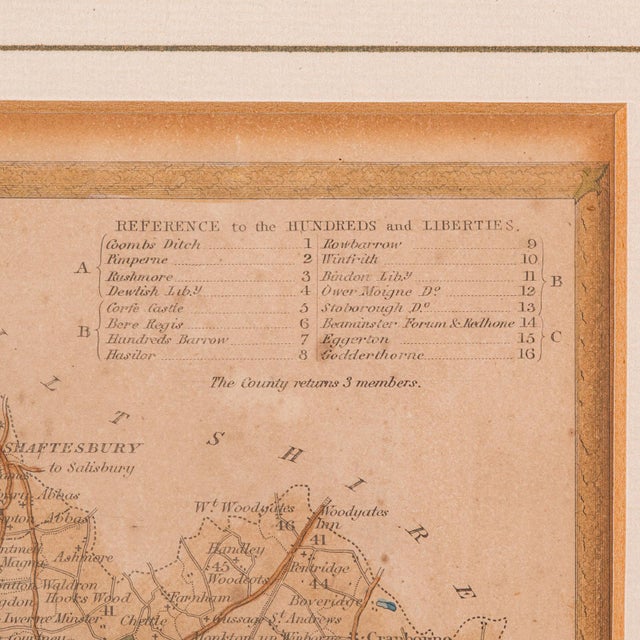 REFERENCE to the HUNDREDS and LIBERTIES.
A
Coombs Ditch 1
Pimperne 2
Rushmore 3
Dewlish Lib.y 4
B
Corfe Castle 5
Bere Regis 6
Hundreds Barrow 7
Hasilor 8
Rowbarrow 9
Winfrith 10
Bindon Lib.y 11
Ower Moigne Do. 12
Stoborough Do. 13
B
Beaminster Forum & Redhone 14
Eggerton 15
Godderthorne 16
C
The County returns 3 members.
L T S H I R E
SHAFTESBURY
to Salisbury
Abbas
Wt. Woodyates
Woodyates
Inn
46
41
Abbas
Handley
Ashmore
Pentridge
45
44
Magna
Woodcots
Waldron
Hooks Wood
Farnham
Boveridge
Iwerne Minster
41
Chettle
Gussage St. Andrews
Cranborne